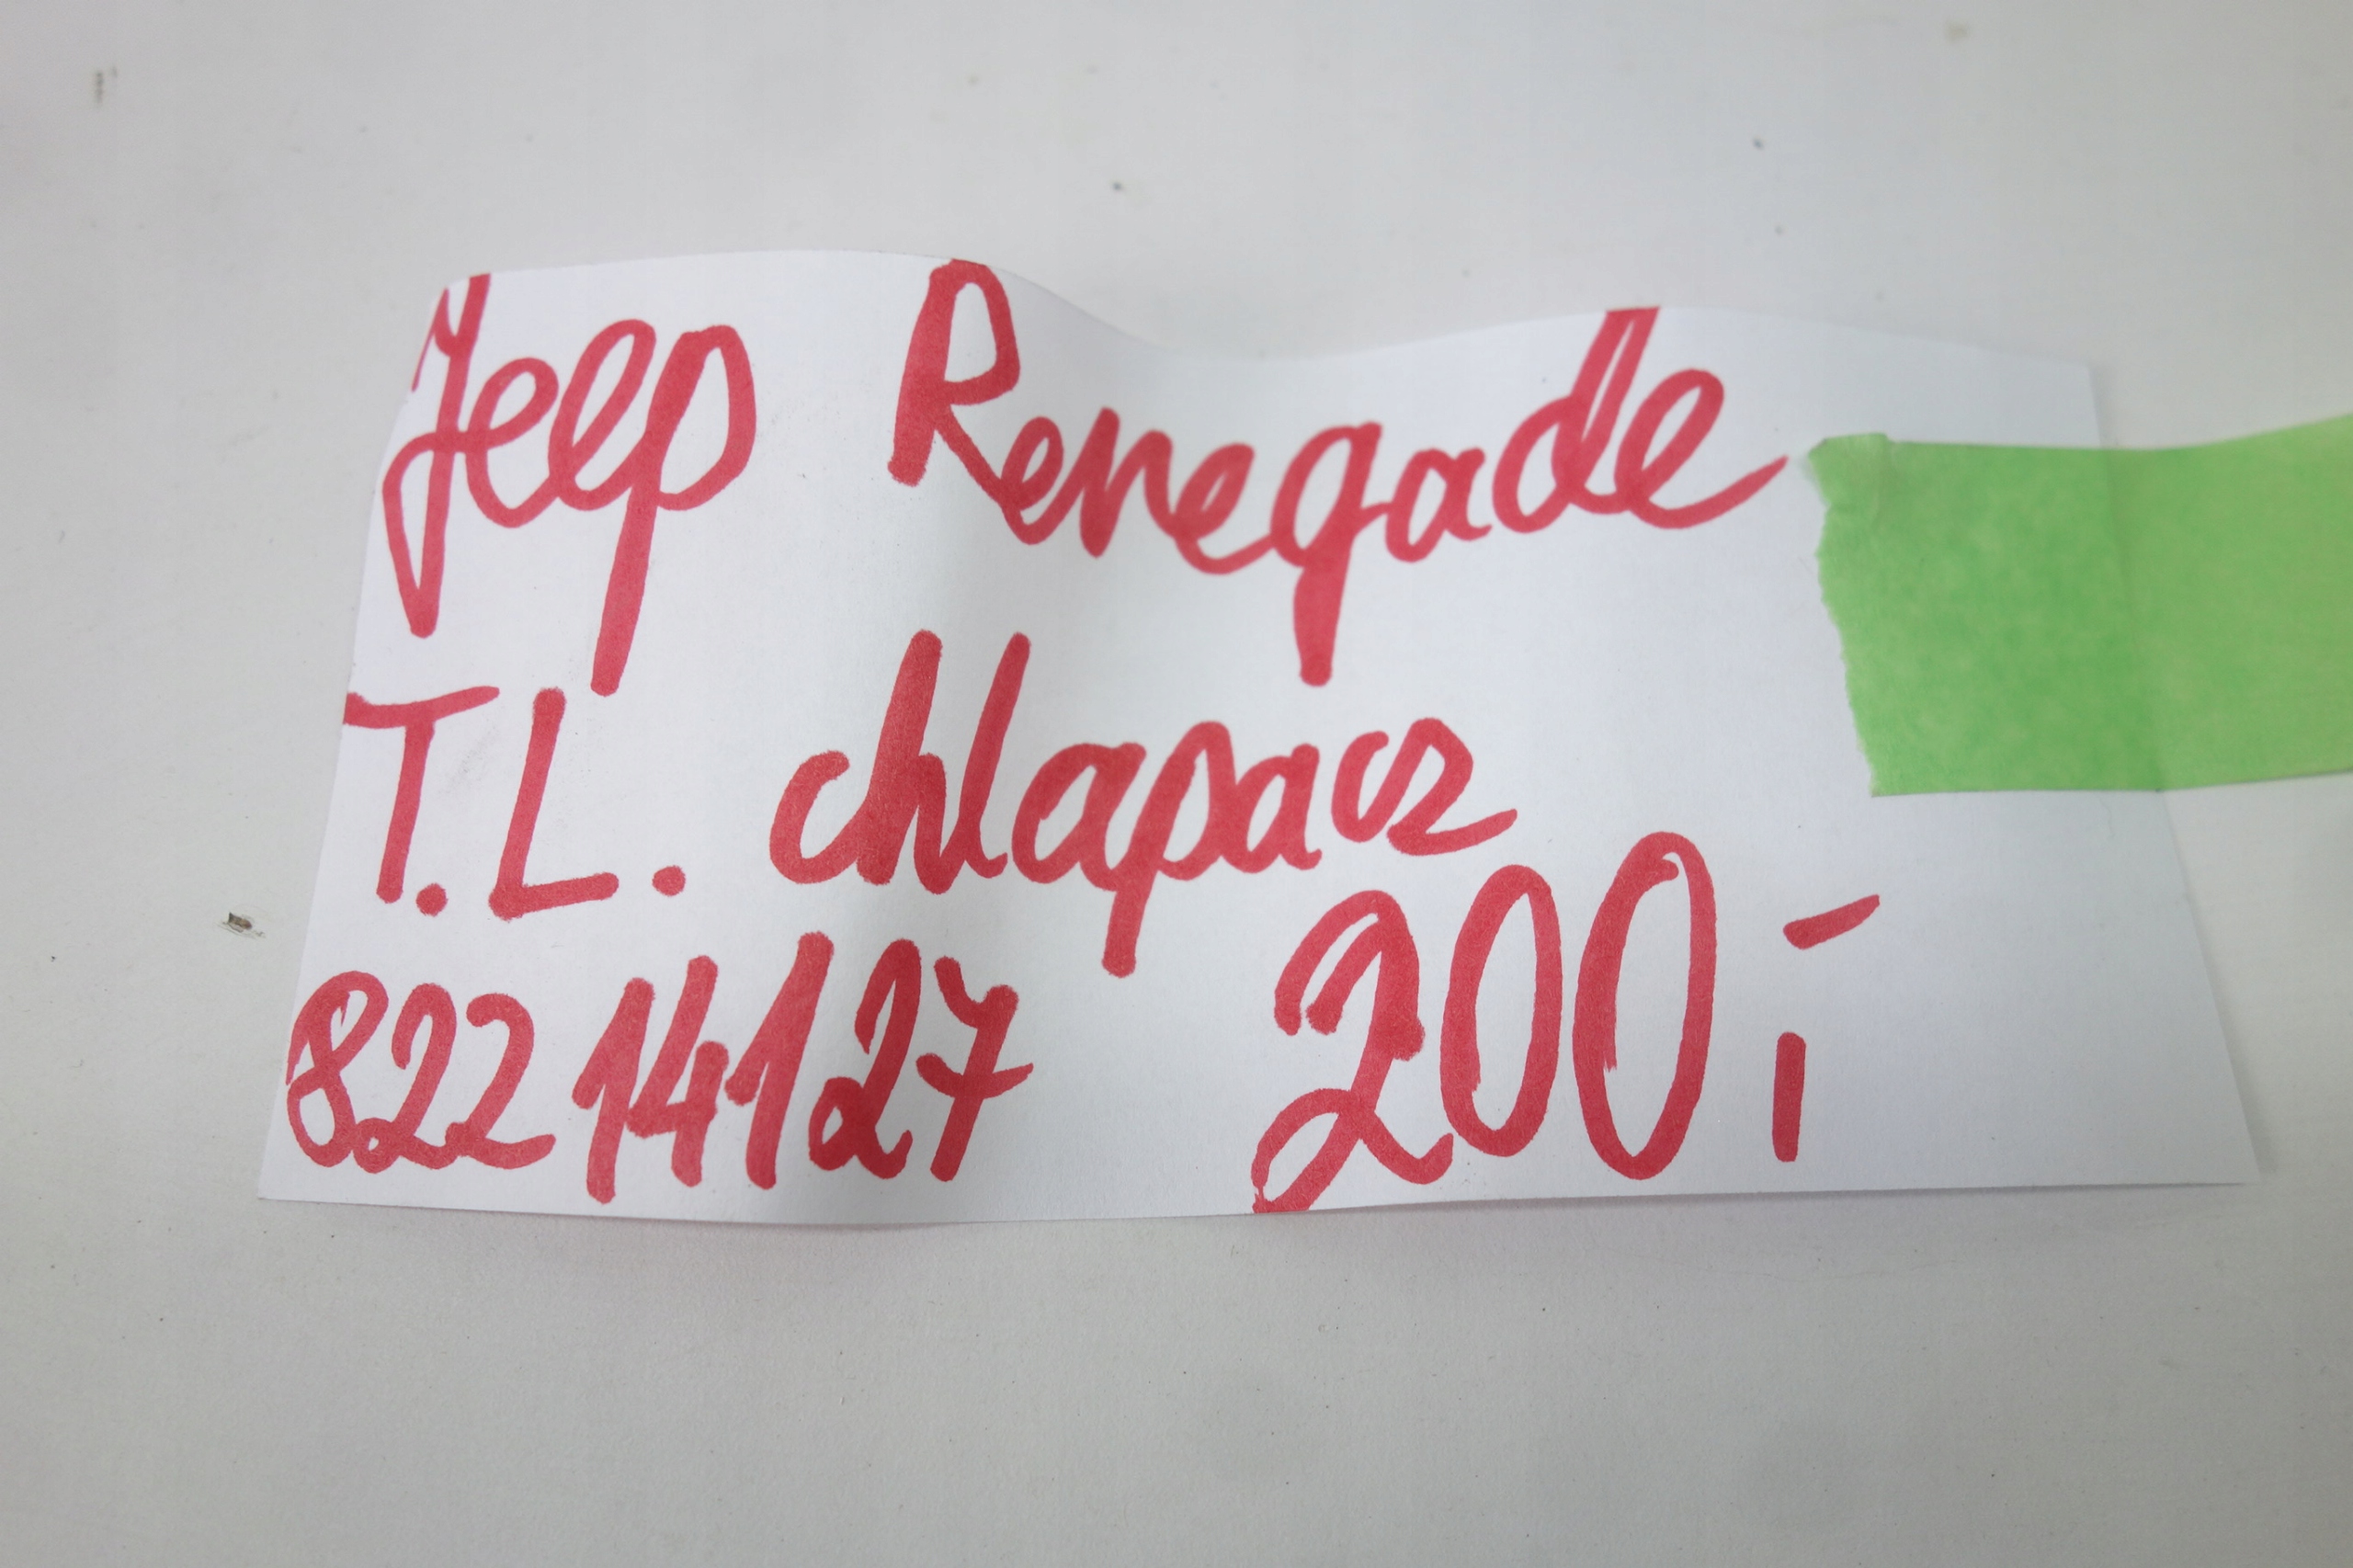 Jeep Renegade
T.L. chlapacz
82214127 200,-